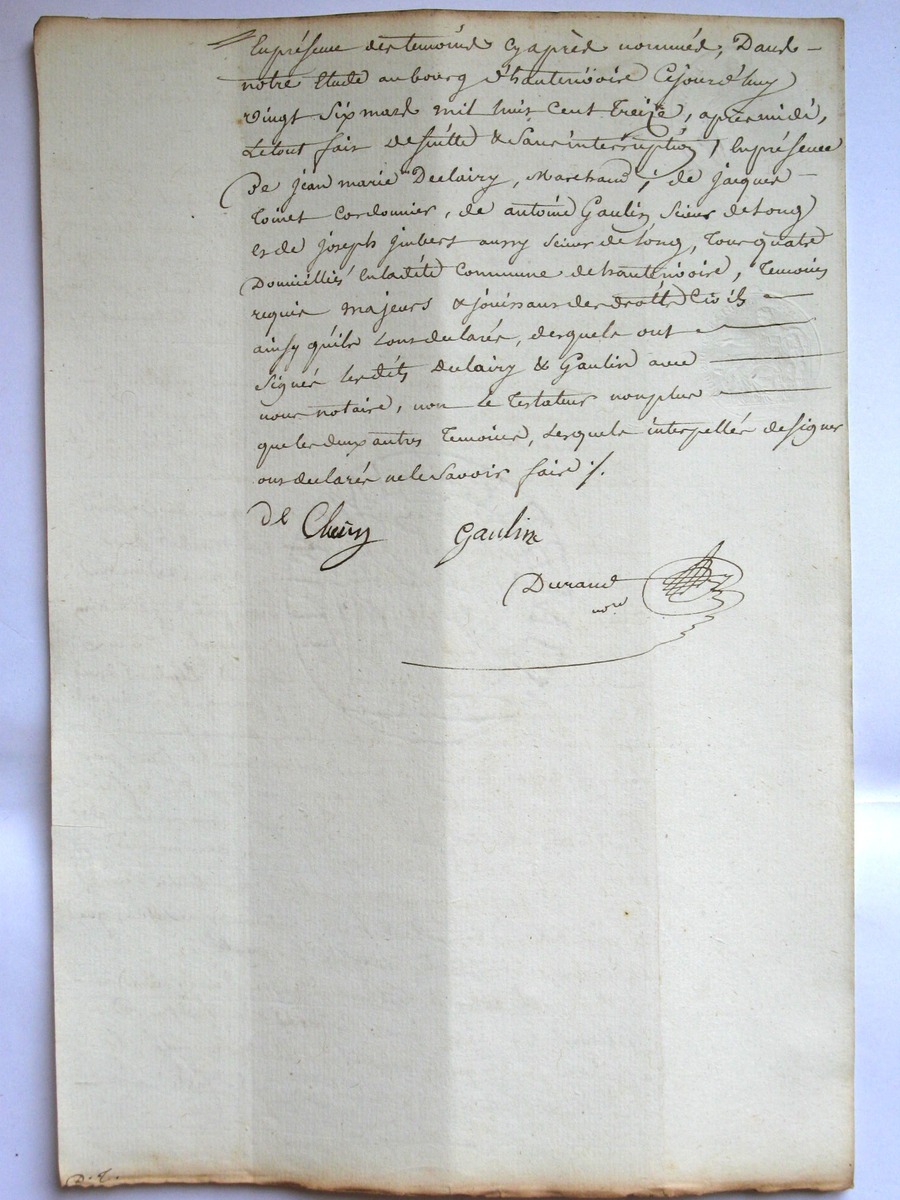 En présence des temoins cy après nommés, Dans
notre Etude au bourg d'hauterivoire Cejourd'huy
vingt Six mars mil huit cent treize, après midi,
Le tout fait de suitte & Sans interruption, En présence
De jean marie Declairy, Marchand, de jacques
Toinet Cordonnier, de antoine Gaulin Scieur de Long
et de joseph jimbert aussy Scieur de Long, Tous quatre
Domiciliés En la dite Commune de hauterivoire, Temoins
requis majeurs & jouissans des droits Civils
ainsy qu'ils L'ont declaré, desquels ont
Signés les dits Declairy & Gaulin avec
nous notaire, non le Testateur non plus
que les deux autres Temoins, Lesquels interpellés de signer
ont declarés ne le Savoir faire ./.
De Clairy Gaulin
Durand
nore
D. T.